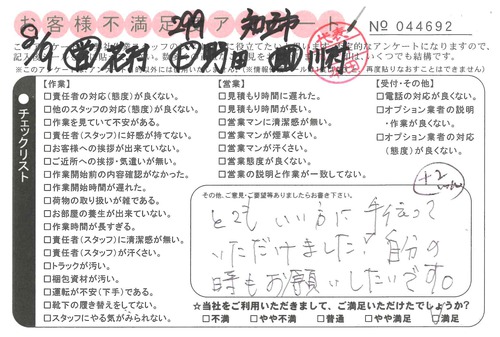 お客様不満足度アンケート
No 044692
チェックリスト
【作業】
□責任者の対応(態度)が良くない。
□他のスタッフの対応(態度)が良くない。
□作業を見ていて不安がある。
□責任者(スタッフ)に好感が持てない。
□お客様への挨拶が出来ていない。
□ご近所への挨拶・気遣いが無い。
□作業開始前の内容確認がなかった。
□作業開始時間が遅れた。
□荷物の取り扱いが雑である。
□お部屋の養生が出来ていない。
□作業時間が長すぎる。
□責任者(スタッフ)に清潔感が無い。
□責任者(スタッフ)が汗くさい。
□トラックが汚い。
□梱包資材が汚い。
□運転が不安(下手)である。
□靴下の履き替えをしてない。
□スタッフにやる気がみられない。
【営業】
□見積もり時間に遅れた。
□見積もり時間が長い。
□営業マンに清潔感が無い。
□営業マンが煙草くさい。
□営業マンが汗くさい。
□営業態度が良くない。
□営業の説明と作業が一致してない。
【受付・その他】
□電話の対応が良くない。
□オプション業者の説明
・作業が良くない。
□オプション業者の対応
(態度)が良くない。
その他、ご意見・ご要望等ありましたらお書き下さい。
とてもいい方に手伝って
いただけました!自分の
時もお願いしたいです。
☆当社をご利用いただきまして、ご満足いただけたでしょうか?
□不満 □やや不満 □普通 □やや満足 □満足